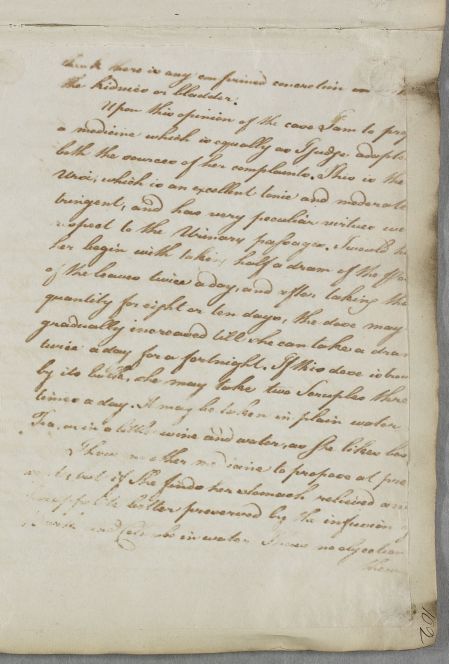 think there is any confirmed concretion in
the kidneies or bladder.
Upon this opinion of the case I am to prop
a medicine which is equally as I judge adapted
both the sources of her complaints. This is the
Ursi, which is an excellent tonic and moderate
tringent, and has very peculiar virtues
respect to the Urinary passages. I would
her begin with taking half a dram of the
of the leaves twice a day, and after taking this
quantity for eight or ten days, the dose may
gradually increased till she can take a dram
twice a day for a fortnight. If this dose is
by its bulk, she may take two Scruples three
times a day. It may be taken in plain water
Tea, or in a little wine and water, as she likes
I have no other medicine to propose at pre
but if She finds her stomach relieved
better preserved by the infusion
in water I have no objection
them
162